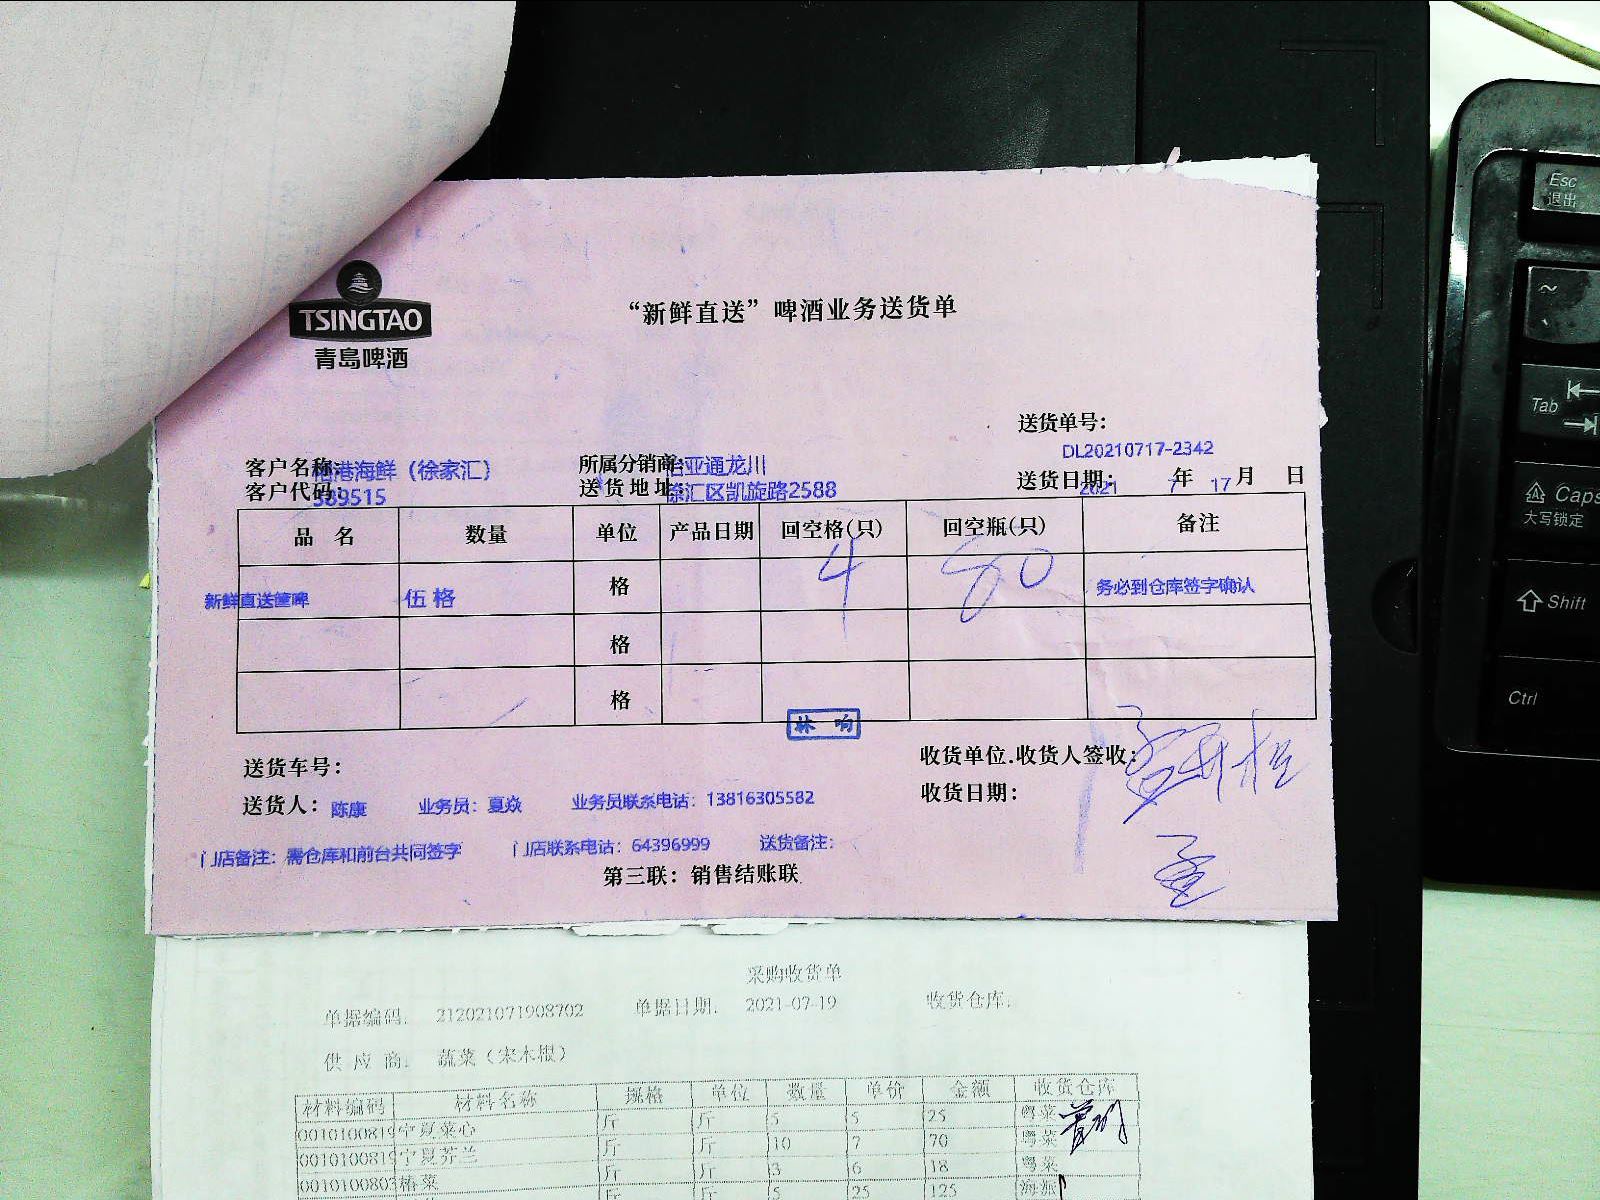 TSINGTAO
青島啤酒
“新鲜直送”啤酒业务送货单
送货单号：
DL20210717-2342
客户名称：港海鲜（徐家汇） 所属分销商：怡亚通龙川 送货日期：2021 年 7 月 17 日
客户代码：589515 送货地址：徐汇区凯旋路2588
品 名 数量 单位 产品日期 回空格(只) 回空瓶(只) 备注
新鲜直送筐啤 伍格 格 4 80 务必到仓库签字确认
格
格
林 响
送货车号： 收货单位.收货人签收：
送货人：陈康 业务员：夏焱 业务员联系电话：13816305582 收货日期：
门店备注：需仓库和前台共同签字 门店联系电话：64396999 送货备注：
第三联：销售结账联
采购收货单
单据编码： 212021071908702 单据日期： 2021-07-19 收货仓库：
供 应 商： 蔬菜（宋木根）
材料编码 材料名称 规格 单位 数量 单价 金额 收货仓库
0010100819 宁夏菜心 斤 斤 5 5 25 粤菜
0010100819 宁夏芥兰 斤 斤 10 7 70 粤菜
001010080 椿菜 斤 斤 3 6 18 粤菜
斤 斤 5 25 125 海派
Esc
退出
~
Tab
Caps
大写锁定
Shift
Ctrl